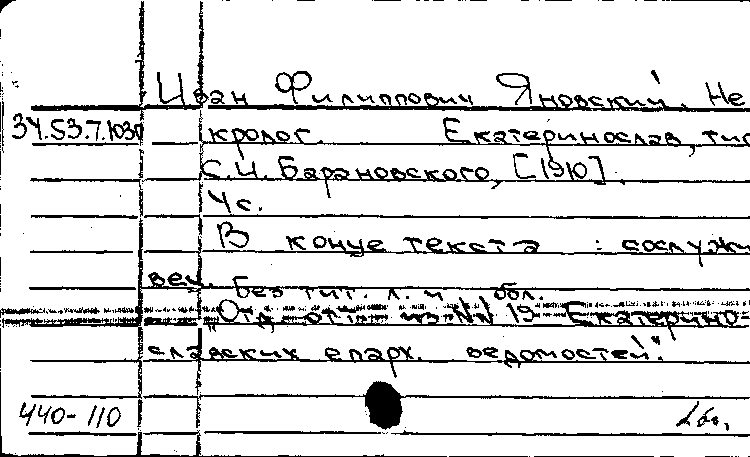 Иван Филиппович Яновский. Не
34.53.7.1030 кролог. Екатеринослав, тип
С.И. Барановского, [1910].
4 с.
В конце текста : сослужи
вец. Без тит. л. и обл.
"Отд. отт. из №№ 19 Екатерино-
славских епарх. ведомостей".
440-110